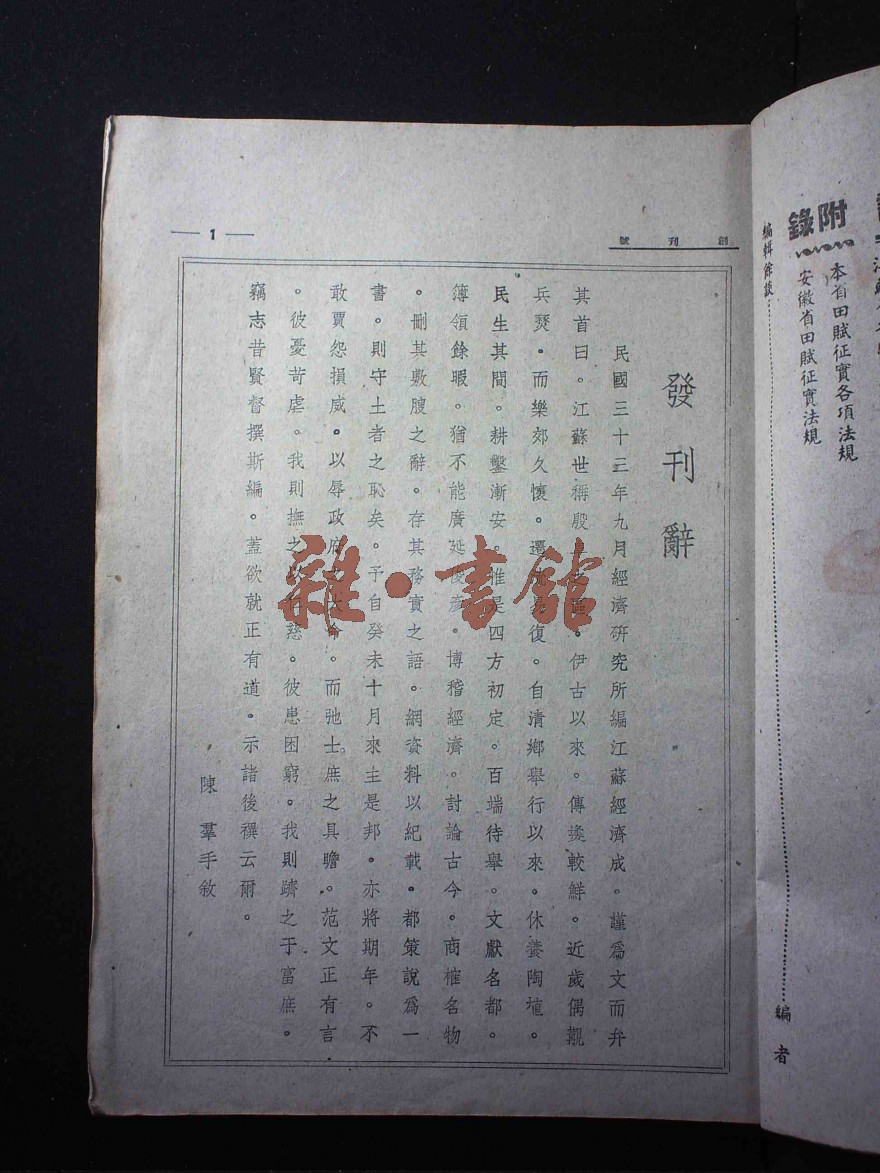 附錄
本省田賦征實各項法規
安徽省田賦征實法規
編輯餘談
編者
創刊號
1
發刊辭
民國三十三年九月經濟研究所編江蘇經濟成。謹爲文而弁
其首曰。江蘇世稱殷 之區。伊古以來。傳 較鮮。近歲偶覯
兵燹。而樂郊久懷。 復。自清鄉舉行以來。休養陶埴。
民生其間。耕鑿漸安。惟是四方初定。百端待舉。文獻名都。
簿領餘暇。猶不能廣延俊彥。博稽經濟。討論古今。商榷名物
。刪其敷膄之辭。存其務實之語。網資料以紀載。都策說爲一
書。則守土者之恥矣。予自癸未十月來主是邦。亦將期年。不
敢賈怨損威。以辱政府之大命。而弛士庶之具瞻。范文正有言
。彼憂苛虐。我則撫之以仁慈。彼患困窮。我則躋之于富庶。
竊志昔賢督撰斯編。蓋欲就正有道。示諸後禩云爾。
陳羣手敘
雜·書館